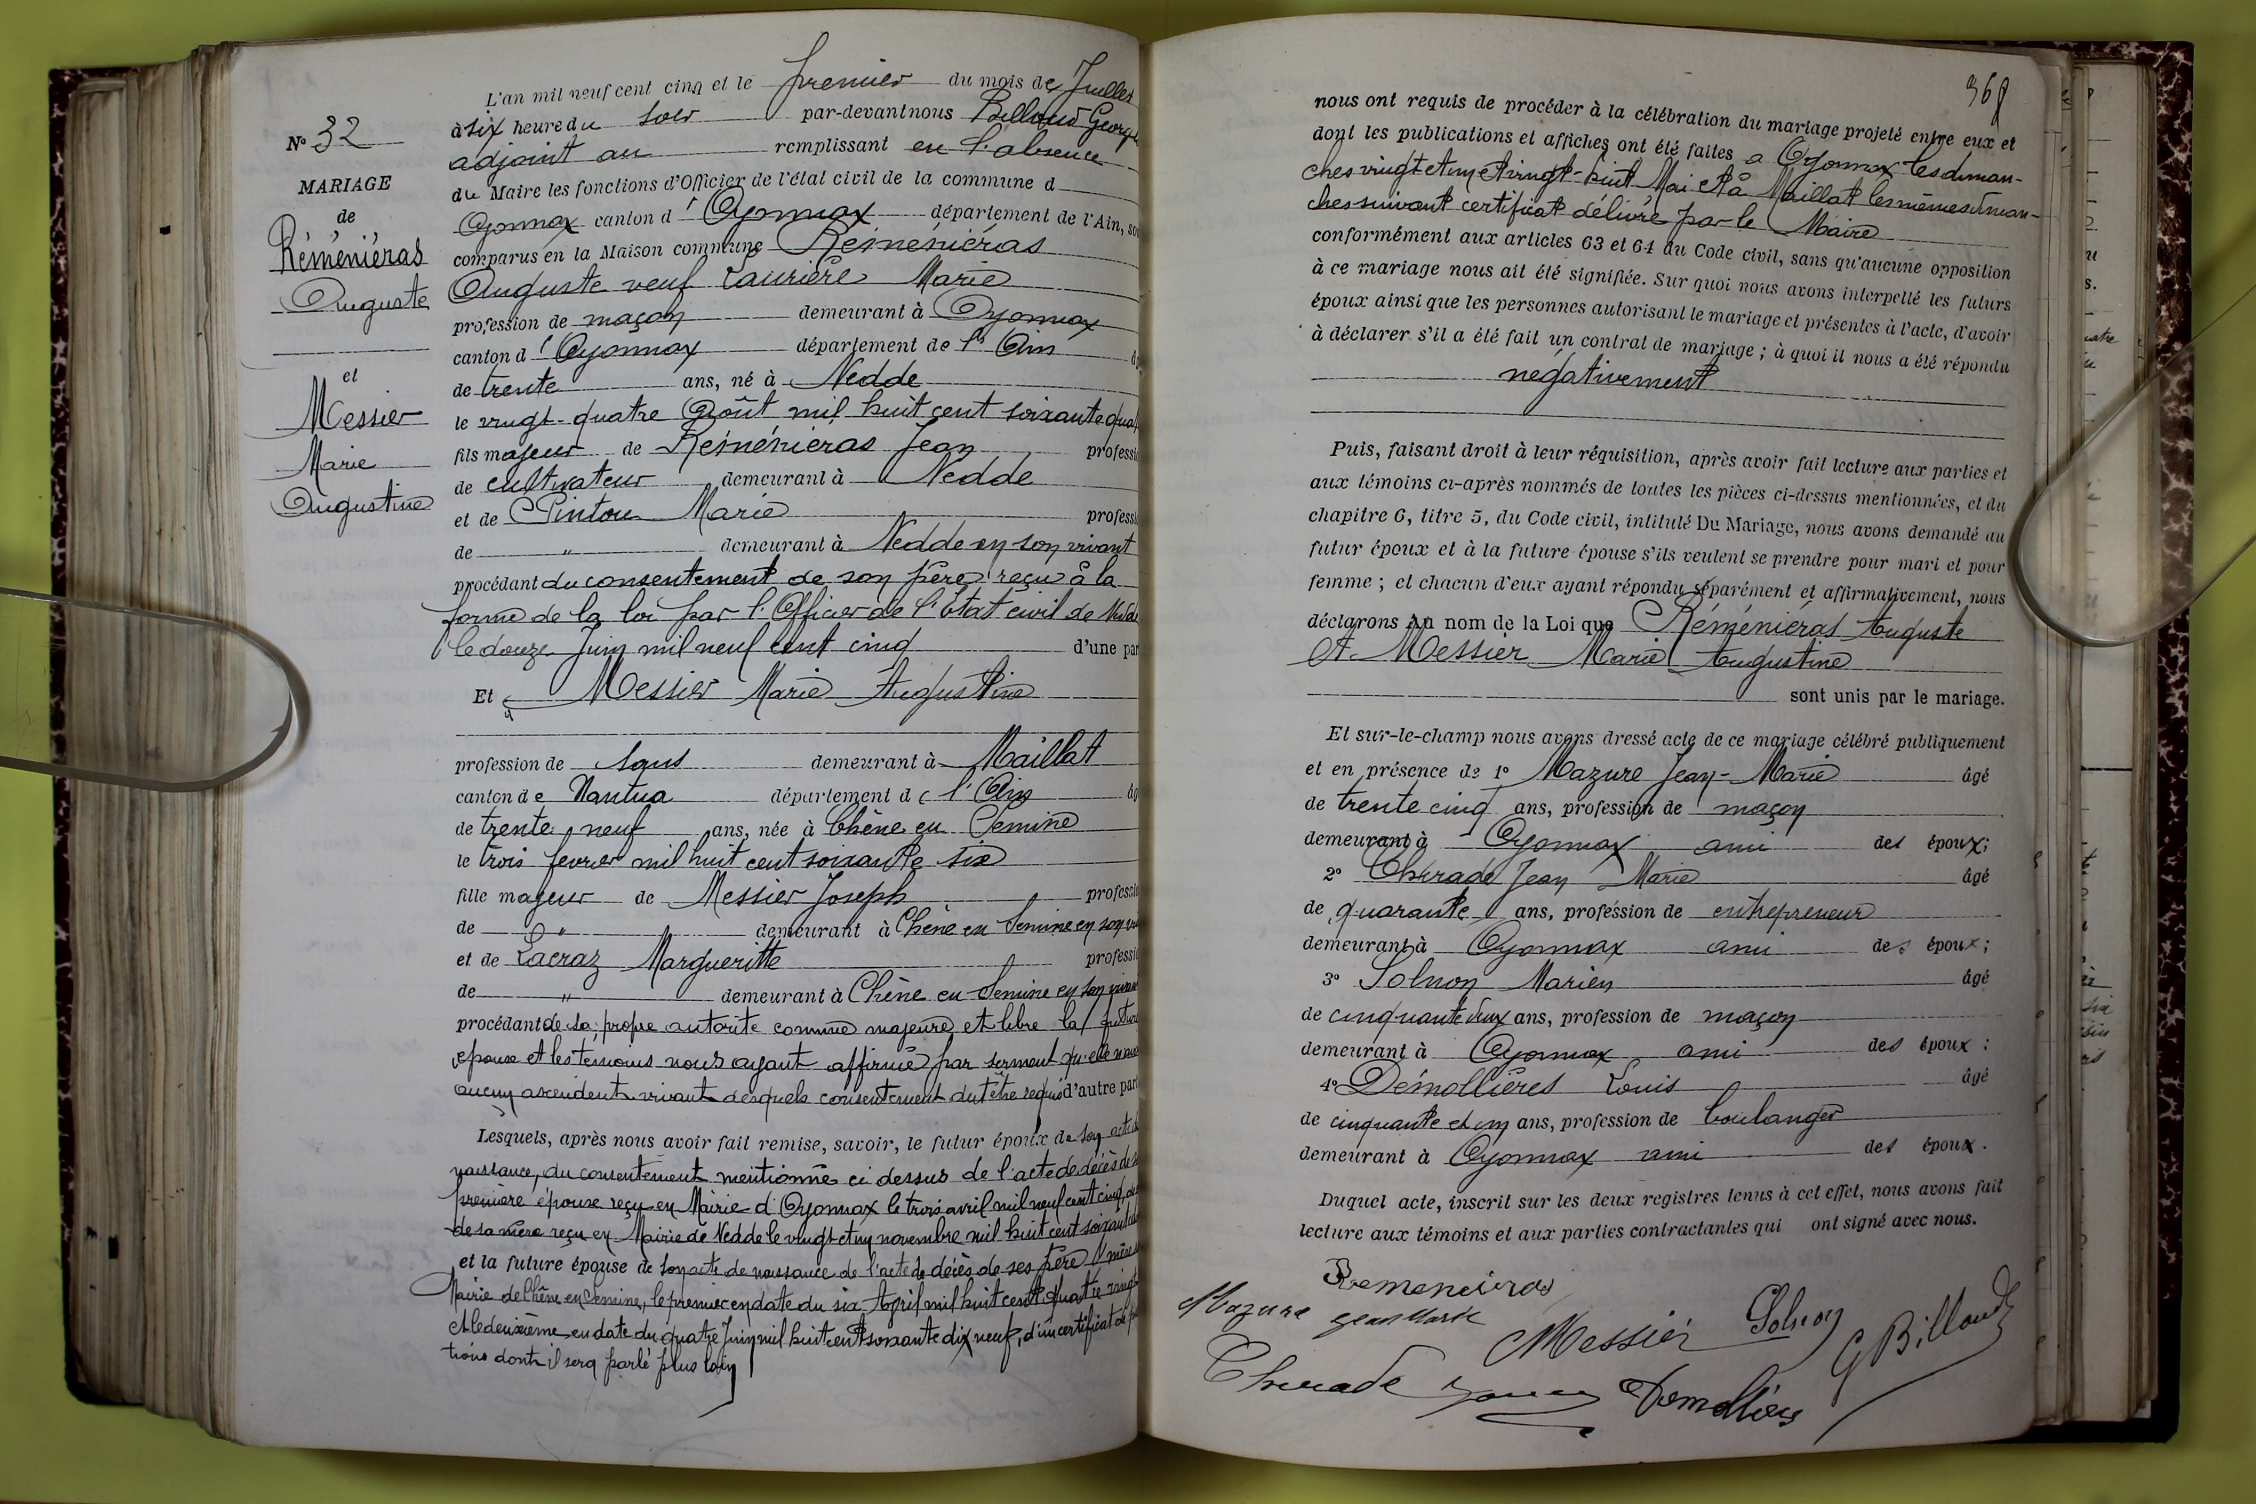 N° 32
MARIAGE
de
Réméniéras
Auguste
et
Messier
Marie
Augustine
L'an mil neuf cent cinq et le premier du mois de Juillet
à six heure du soir par-devant nous Billoud George
adjoint au remplissant en l'absence
du Maire les fonctions d'Officier de l'état civil de la commune d
Oyonnax canton d'Oyonnax département de l'Ain, so
comparus en la Maison commune Réméniéras
Auguste veuf Laurière Marie
profession de maçon demeurant à Oyonnax
canton d'Oyonnax département de l'Ain
de trente ans, né à Nedde
le vingt-quatre Août mil huit cent soixante quat
fils majeur de Réméniéras Jean professi
de cultivateur demeurant à Nedde
et de Pintou Marie professi
de " demeurant à Nedde en son vivant
procédant du consentement de son père reçu à la
forme de la loi par l'Officier de l'État civil de Nedde
le douze Juin mil neuf cent cinq d'une par
Et Messier Marie Augustine
profession de sans demeurant à Maillat
canton de Nantua département de l'Ain âg
de trente neuf ans, née à Chêne en Semine
le trois fevrier mil huit cent soixante six
fille majeur de Messier Joseph professi
de " demeurant à Chêne en Semine en son viv
et de Lacraz Margueritte professi
de " demeurant à Chêne en Semine en son vivant
procédant de sa propre autorité comme majeure et libre la future
epouse et les témoins nous ayant affirmé par serment qu'elle n'avait
aucun ascendent vivant desquels consentement dut être requis d'autre part
Lesquels, après nous avoir fait remise, savoir, le futur époux de son acte de
naissance, du consentement mentionné ci dessus de l'acte de décès de sa
première épouse reçu en Mairie d'Oyonnax le trois avril mil neuf cent cinq, de
de sa mère reçu en Mairie de Nedde le vingt et un novembre mil huit cent soixante
et la future épouse de son acte de naissance de l'acte de décès de ses père & mère
Mairie de Chêne en Semine, le premier en date du six Avril mil huit cent quatre vingt
et le deuxième en date du quatre Juin mil huit cent soixante dix neuf, d'un certificat de
tions dont il sera parlé plus loin
368
nous ont requis de procéder à la célébration du mariage projeté entre eux et
dont les publications et affiches ont été faites a Oyonnax les diman-
ches vingt et un et vingt-huit Mai et à Maillat les mêmes diman-
ches suivant certificat délivré par le Maire
conformément aux articles 63 et 64 du Code civil, sans qu'aucune opposition
à ce mariage nous ait été signifiée. Sur quoi nous avons interpellé les futurs
époux ainsi que les personnes autorisant le mariage et présentes à l'acte, d'avoir
à déclarer s'il a été fait un contrat de mariage ; à quoi il nous a été répondu
négativement
Puis, faisant droit à leur réquisition, après avoir fait lecture aux parties et
aux témoins ci-après nommés de toutes les pièces ci-dessus mentionnées, et du
chapitre 6, titre 5, du Code civil, intitulé Du Mariage, nous avons demandé au
futur époux et à la future épouse s'ils veulent se prendre pour mari et pour
femme ; et chacun d'eux ayant répondu séparément et affirmativement, nous
déclarons au nom de la Loi que Réméniéras Auguste
et Messier Marie Augustine
sont unis par le mariage.
Et sur-le-champ nous avons dressé acte de ce mariage célébré publiquement
et en présence de 1° Mazure Jean-Marie âgé
de trente cinq ans, profession de maçon
demeurant à Oyonnax ami des époux;
2° Chirade Jean Marie âgé
de quarante ans, profession de entrepreneur
demeurant à Oyonnax ami des époux;
3° Solnon Marien âgé
de cinquante deux ans, profession de maçon
demeurant à Oyonnax ami des époux ;
4° Démollières Louis âgé
de cinquante et un ans, profession de boulanger
demeurant à Oyonnax ami des époux.
Duquel acte, inscrit sur les deux registres tenus à cet effet, nous avons fait
lecture aux témoins et aux parties contractantes qui ont signé avec nous.
Remenieras
Mazure jean Marie
Messier Solnon G Billoud
Chirade Demollière